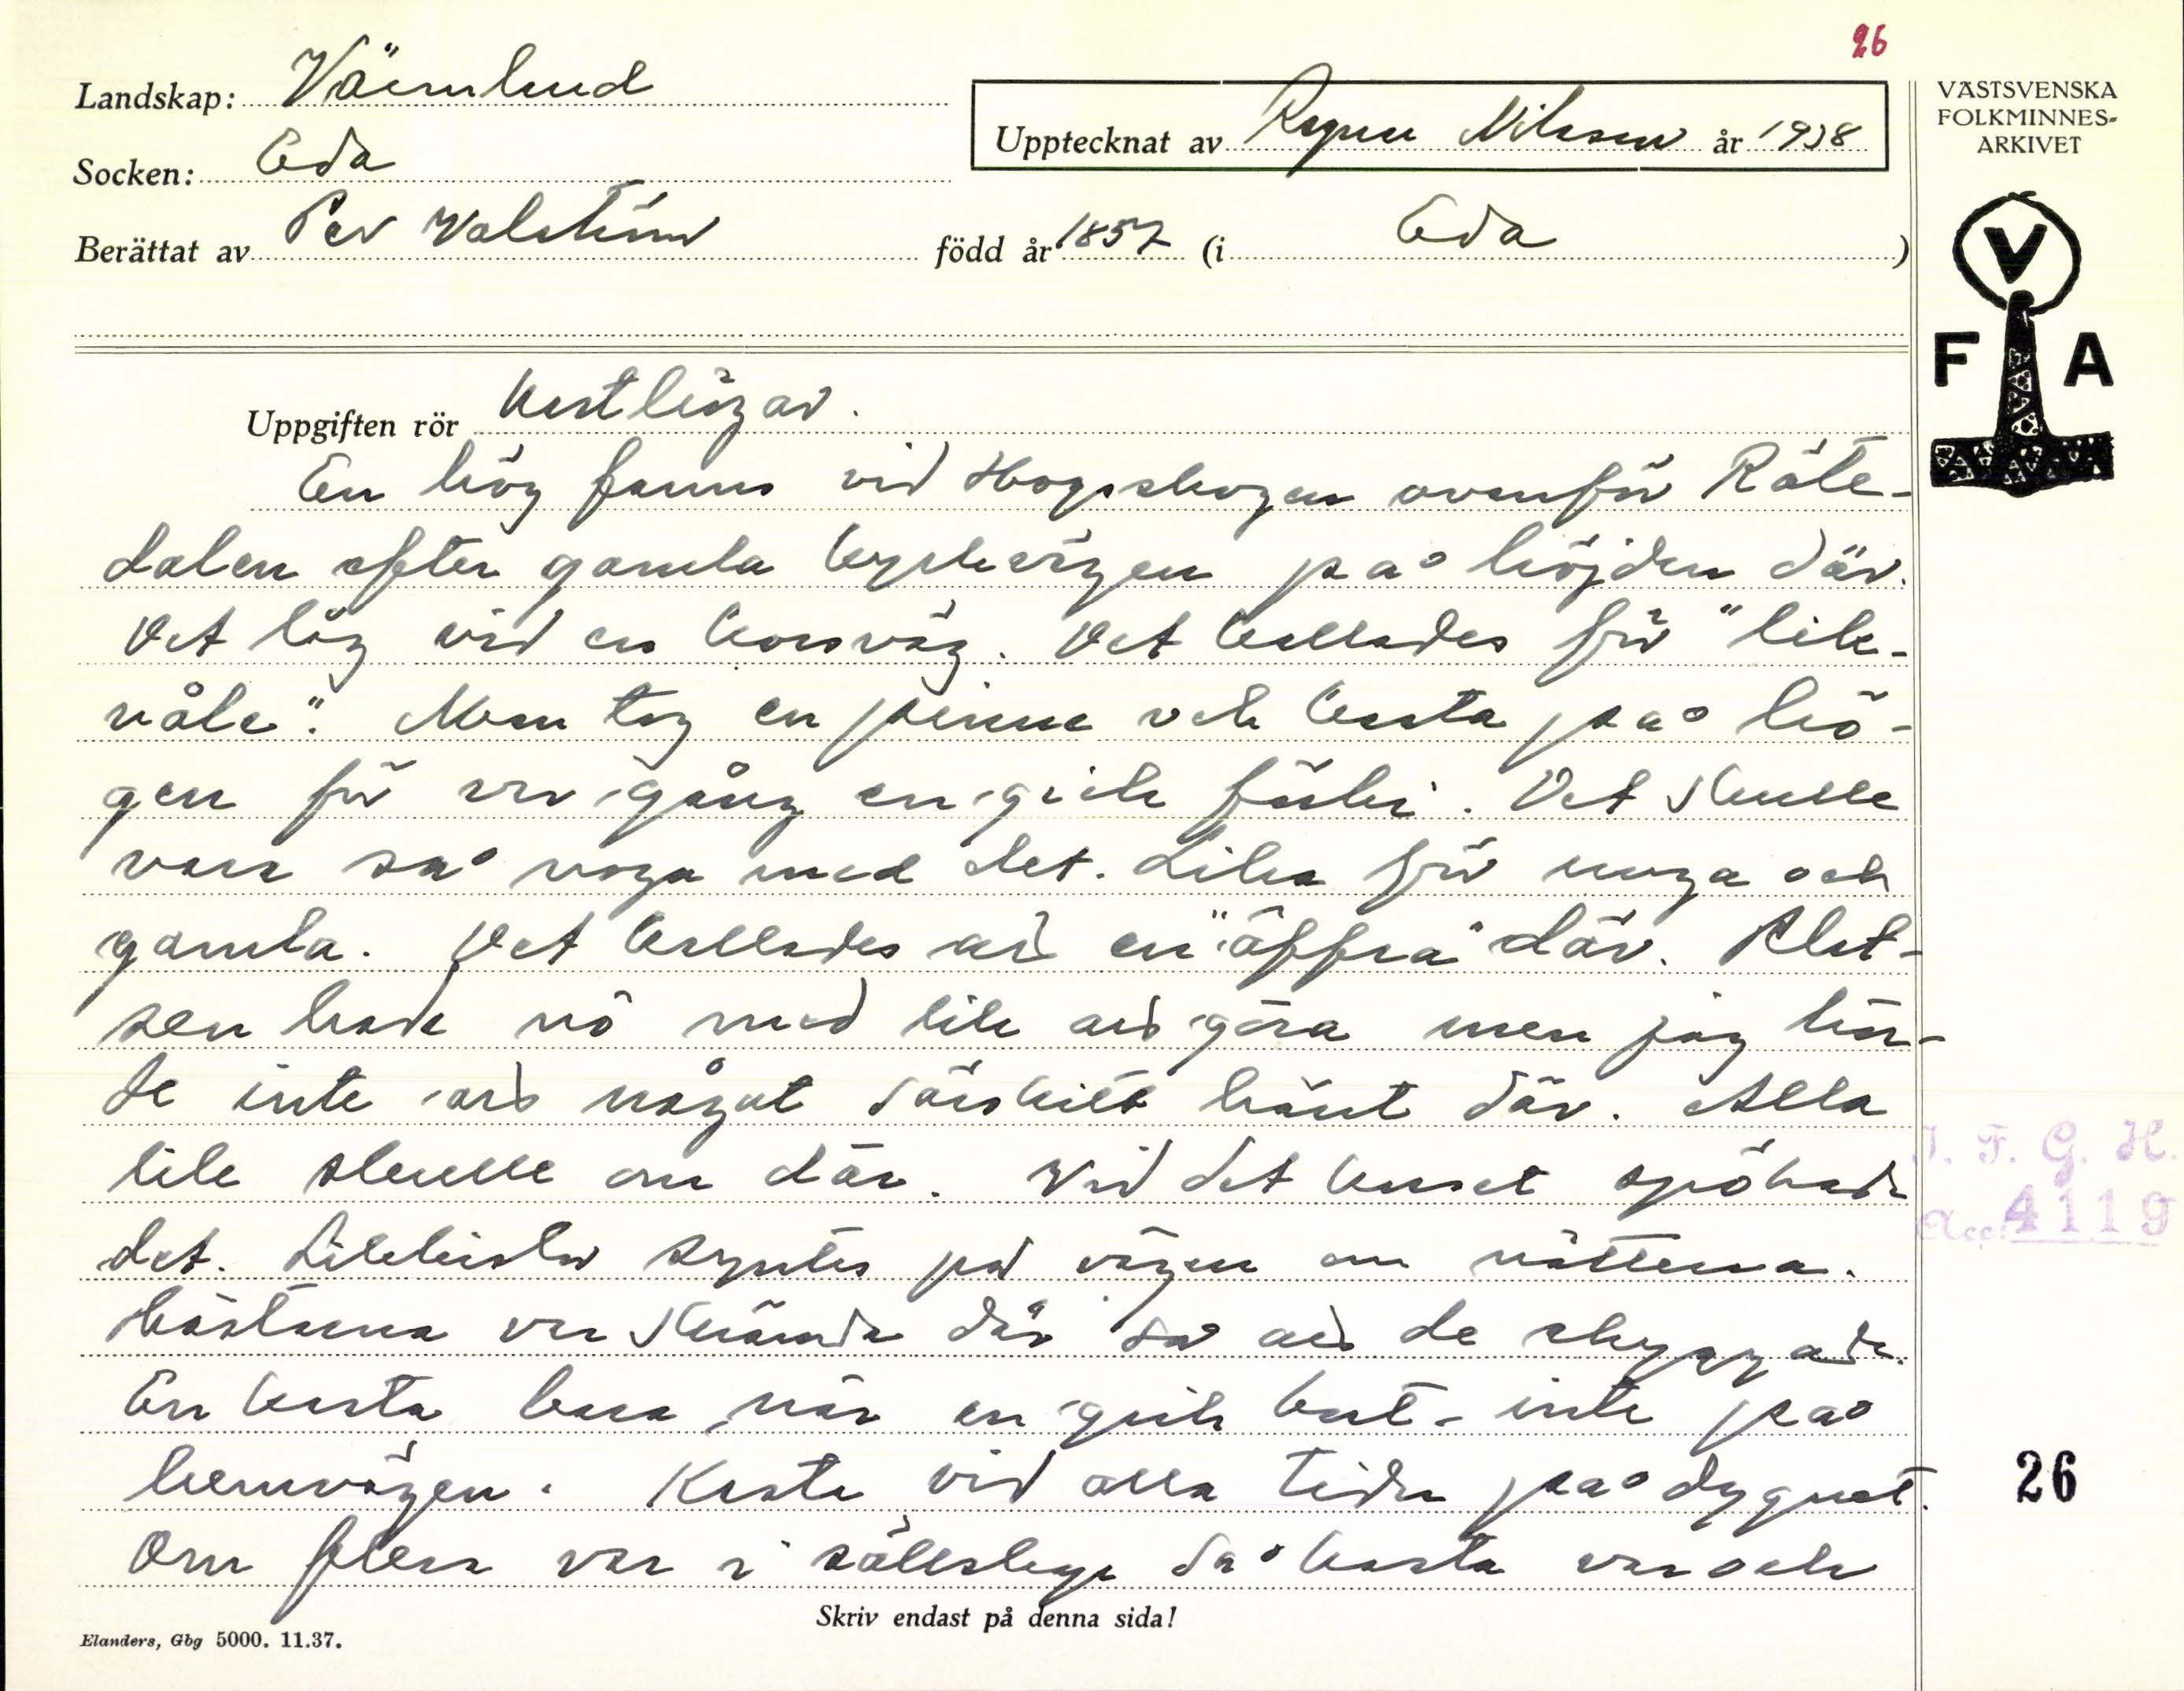 26
Landskap: Värmland
Socken: Eda
Berättat av Per Valström född år 1857 (i Eda )
Upptecknat av Ragnar Nilsson år 1938
VÄSTSVENSKA
FOLKMINNES-
ARKIVET
V
F A
Uppgiften rör Kasthögar.
En hög fanns vid Hogsskogen ovanför Räte-
dalen efter gamla kyrkvägen på höjden där.
Det låg vid en korsväg. Det kallades för "lik-
våle". Man tog en pinne och kasta på hö-
gen för var gång en gick förbi. Det skulle
vara så noga med det. Lika för unga och
gamla. Det kallades att en "åffra" där. Plat-
sen hade nå med lik att göra men jag hör-
de inte att något särskilt hänt där. Alla
lik skulle om där. Vid det kastet spökade
det. Likkistor syntes på vägen om nätterna.
Hästarna var skrämda där så att de skyggade.
En kasta bara när en gick bort - inte på
hemvägen. Kasta vid alla tider på dygnet.
Om flera var i sällskap så kasta var och
Skriv endast på denna sida!
Elanders, Gbg 5000. 11.37.
I. F. G. H.
Acc: 4119
26